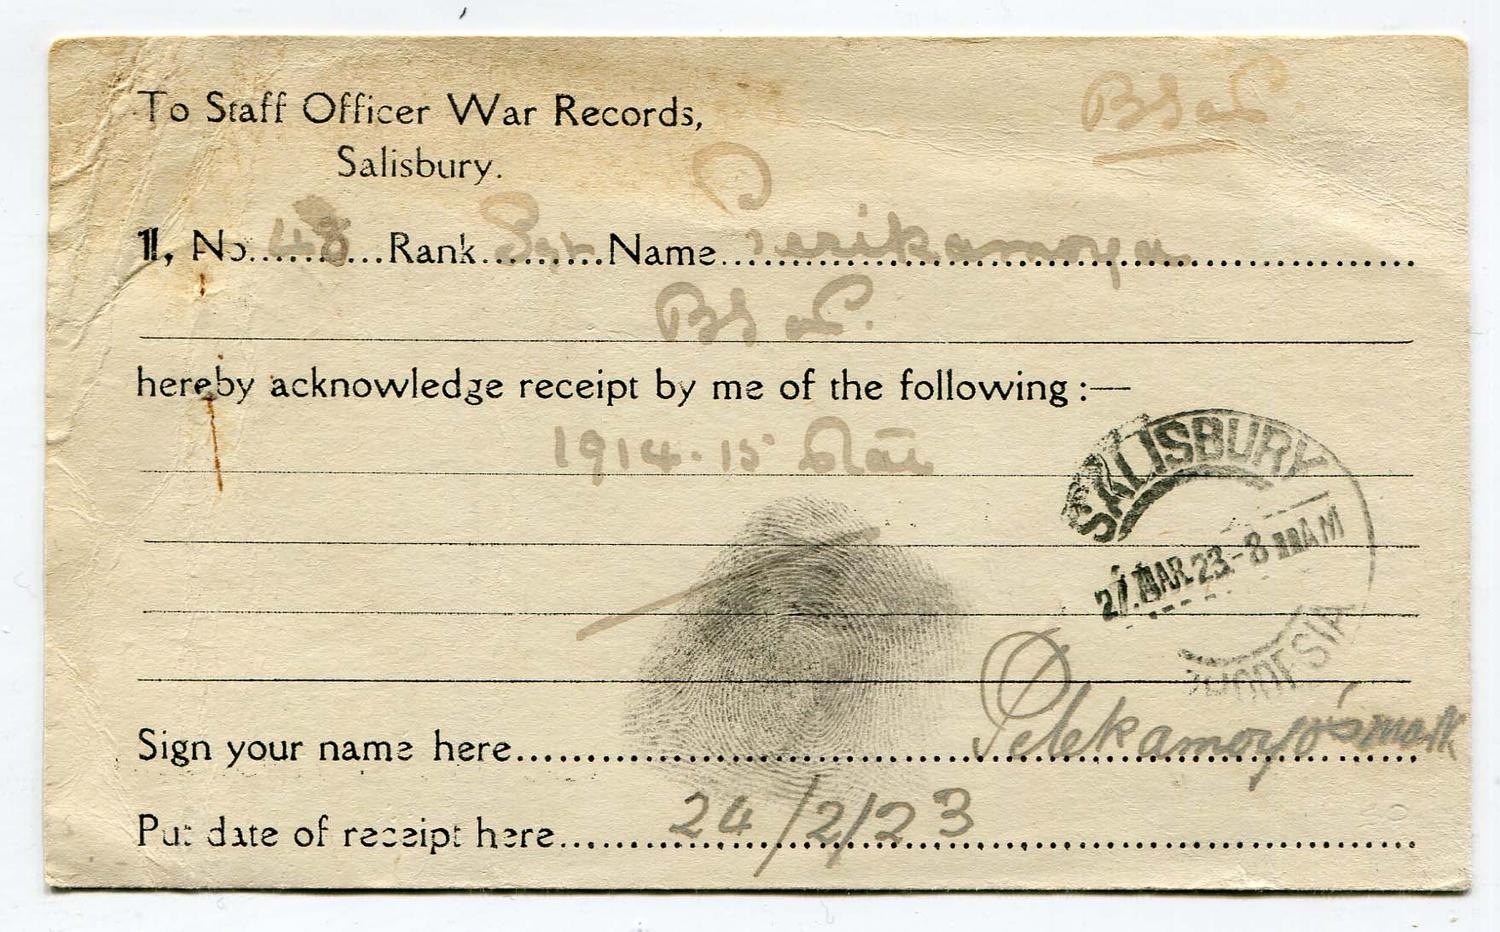 To Staff Officer War Records,
Salisbury.
I, No. 48 Rank Name Perikamoya
hereby acknowledge receipt by me of the following :—
1914-15 Star
SALISBURY
27 MAR 23 - 8 AM
RHODESIA
Sign your name here Pelekamoyo's mark
Put date of receipt here 24/2/23